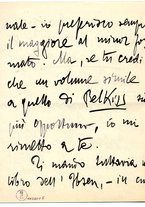 nale - io preferisco sempre
il maggiore al minor for
mato! Ma, se tu credi
che un volume simile
a quello di Pelkius sia
più opportuno, io mi
rimetto a te.
Ti mando tuttavia un
libro dell'Ibsen, - in cui